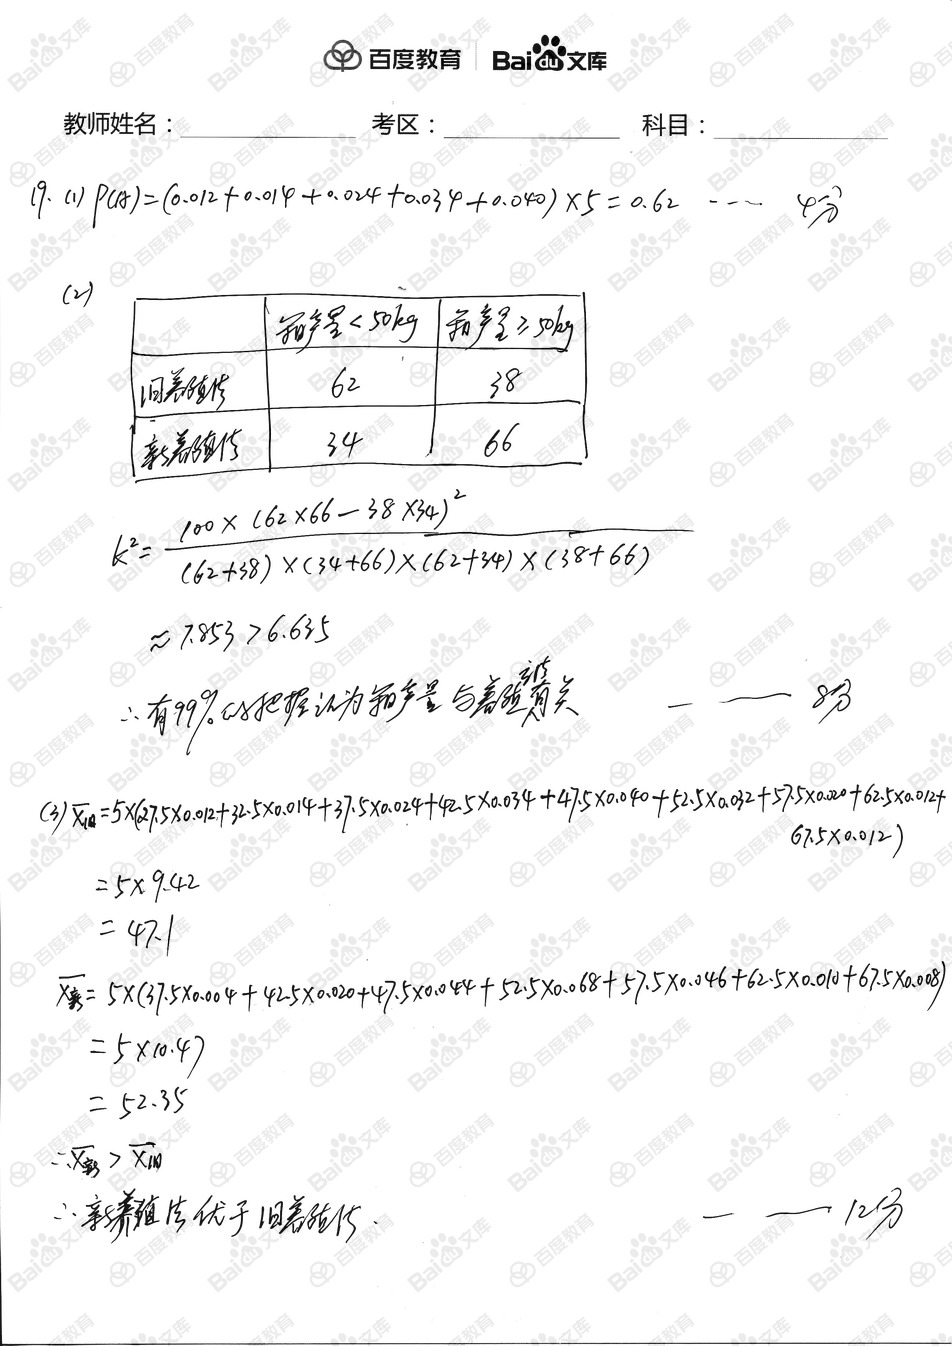 百度教育 Baidu文库
教师姓名： 考区： 科目：
19. (1) P(A)=(0.012+0.014+0.024+0.034+0.040)×5=0.62 ---- 4分
(2)
箱产量<50kg 箱产量≥50kg
旧养殖法 62 38
新养殖法 34 66
K²= 100×(62×66-38×34)² / (62+38)×(34+66)×(62+34)×(38+66)
≈7.853>6.635
∴有99%的把握认为箱产量与养殖方法有关 —— 8分
(3) x̄旧=5×(27.5×0.012+32.5×0.014+37.5×0.024+42.5×0.034+47.5×0.040+52.5×0.032+57.5×0.020+62.5×0.012+
67.5×0.012)
=5×9.42
=47.1
x̄新=5×(37.5×0.004+42.5×0.020+47.5×0.044+52.5×0.068+57.5×0.046+62.5×0.010+67.5×0.008)
=5×10.47
=52.35
∵x̄新>x̄旧
∴新养殖法优于旧养殖法. —— 12分